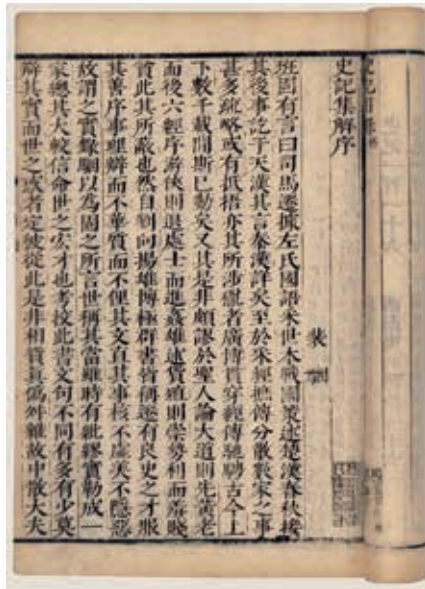 史記集解序
裴駰
班固有言曰司馬遷據左氏國語采世本戰國策述楚漢春秋接
其後事訖于天漢其言秦漢詳矣至於采經摭傳分散數家之事
甚多疏略或有抵捂亦其所涉獵者廣博貫穿經傳馳騁古今上
下數千載間斯已勤矣又其是非頗謬於聖人論大道則先黃老
而後六經序游俠則退處士而進姦雄述貨殖則崇勢利而羞賤
貧此其所蔽也然自劉向揚雄博極群書皆稱遷有良史之才服
其善序事理辯而不華質而不俚其文直其事核不虛美不隱惡
故謂之實錄駰以為固之所言世稱其當雖時有紕繆實勒成一
家總其大較信命世之宏才也考校此書文句不同有多有少莫
辯其實而世之惑者定彼從此是非相貿真偽舛雜故中散大夫